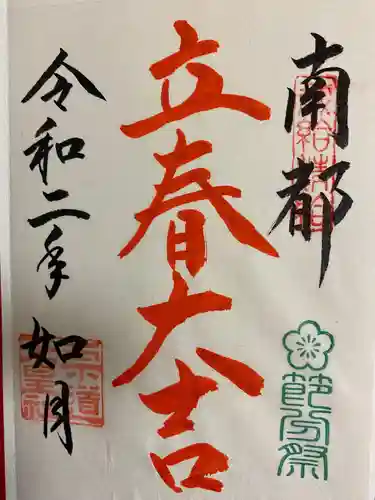 南都
節分祭
立春大吉
令和二年 如月